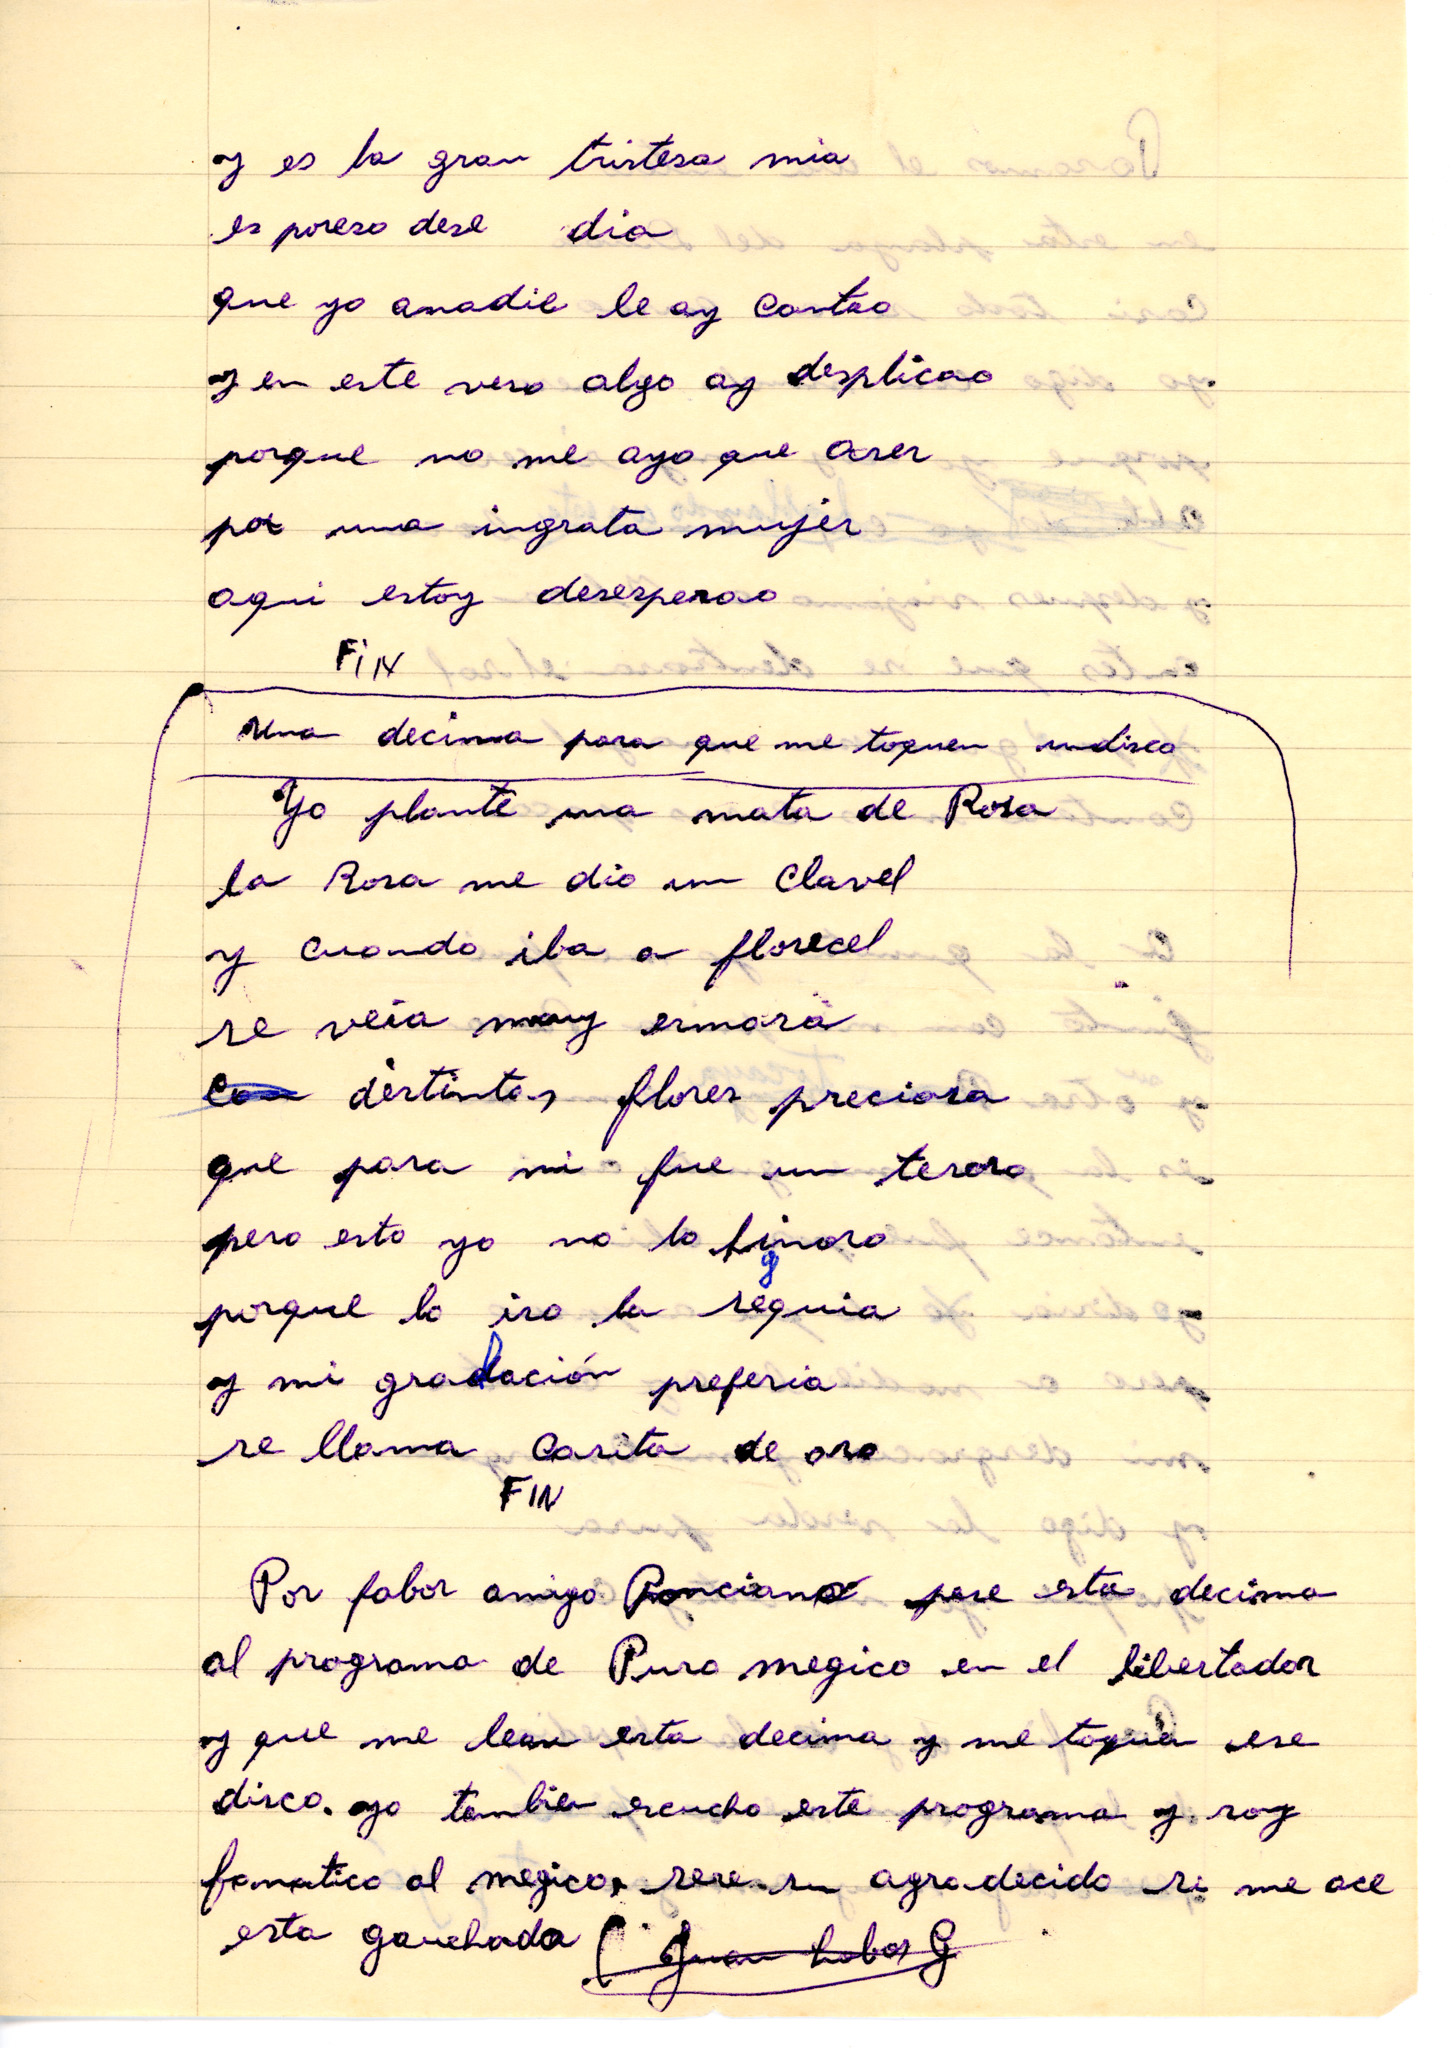 y es la gran tristesa mia
es poreso dese dia
que yo anadie le ay contao
y en este verso algo ay desplicao
porque no me ayo que aser
por una ingrata mujer
aqui estoy desesperao
FiN
una decima para que me toquen undisco
Yo planté una mata de Rosa
la Rosa me dio un Clavel
y cuando iba a florecel
se veia muy ermosa
con distintas flores preciosa
que para mi fue un tesoro
pero esto yo no lo
porque lo iso la seguia
y mi gradación preferia
se llama Casita de oro
FIN
Por fabor amigo Ponciano pase esta decima
al programa de Puro megico en el libertador
y que me lean esta decima y me toquen ese
disco. yo tambien escucho este programa y soy
fanatico al megico, sere su agradecido si me ace
esta gauchada Juan Lobos G